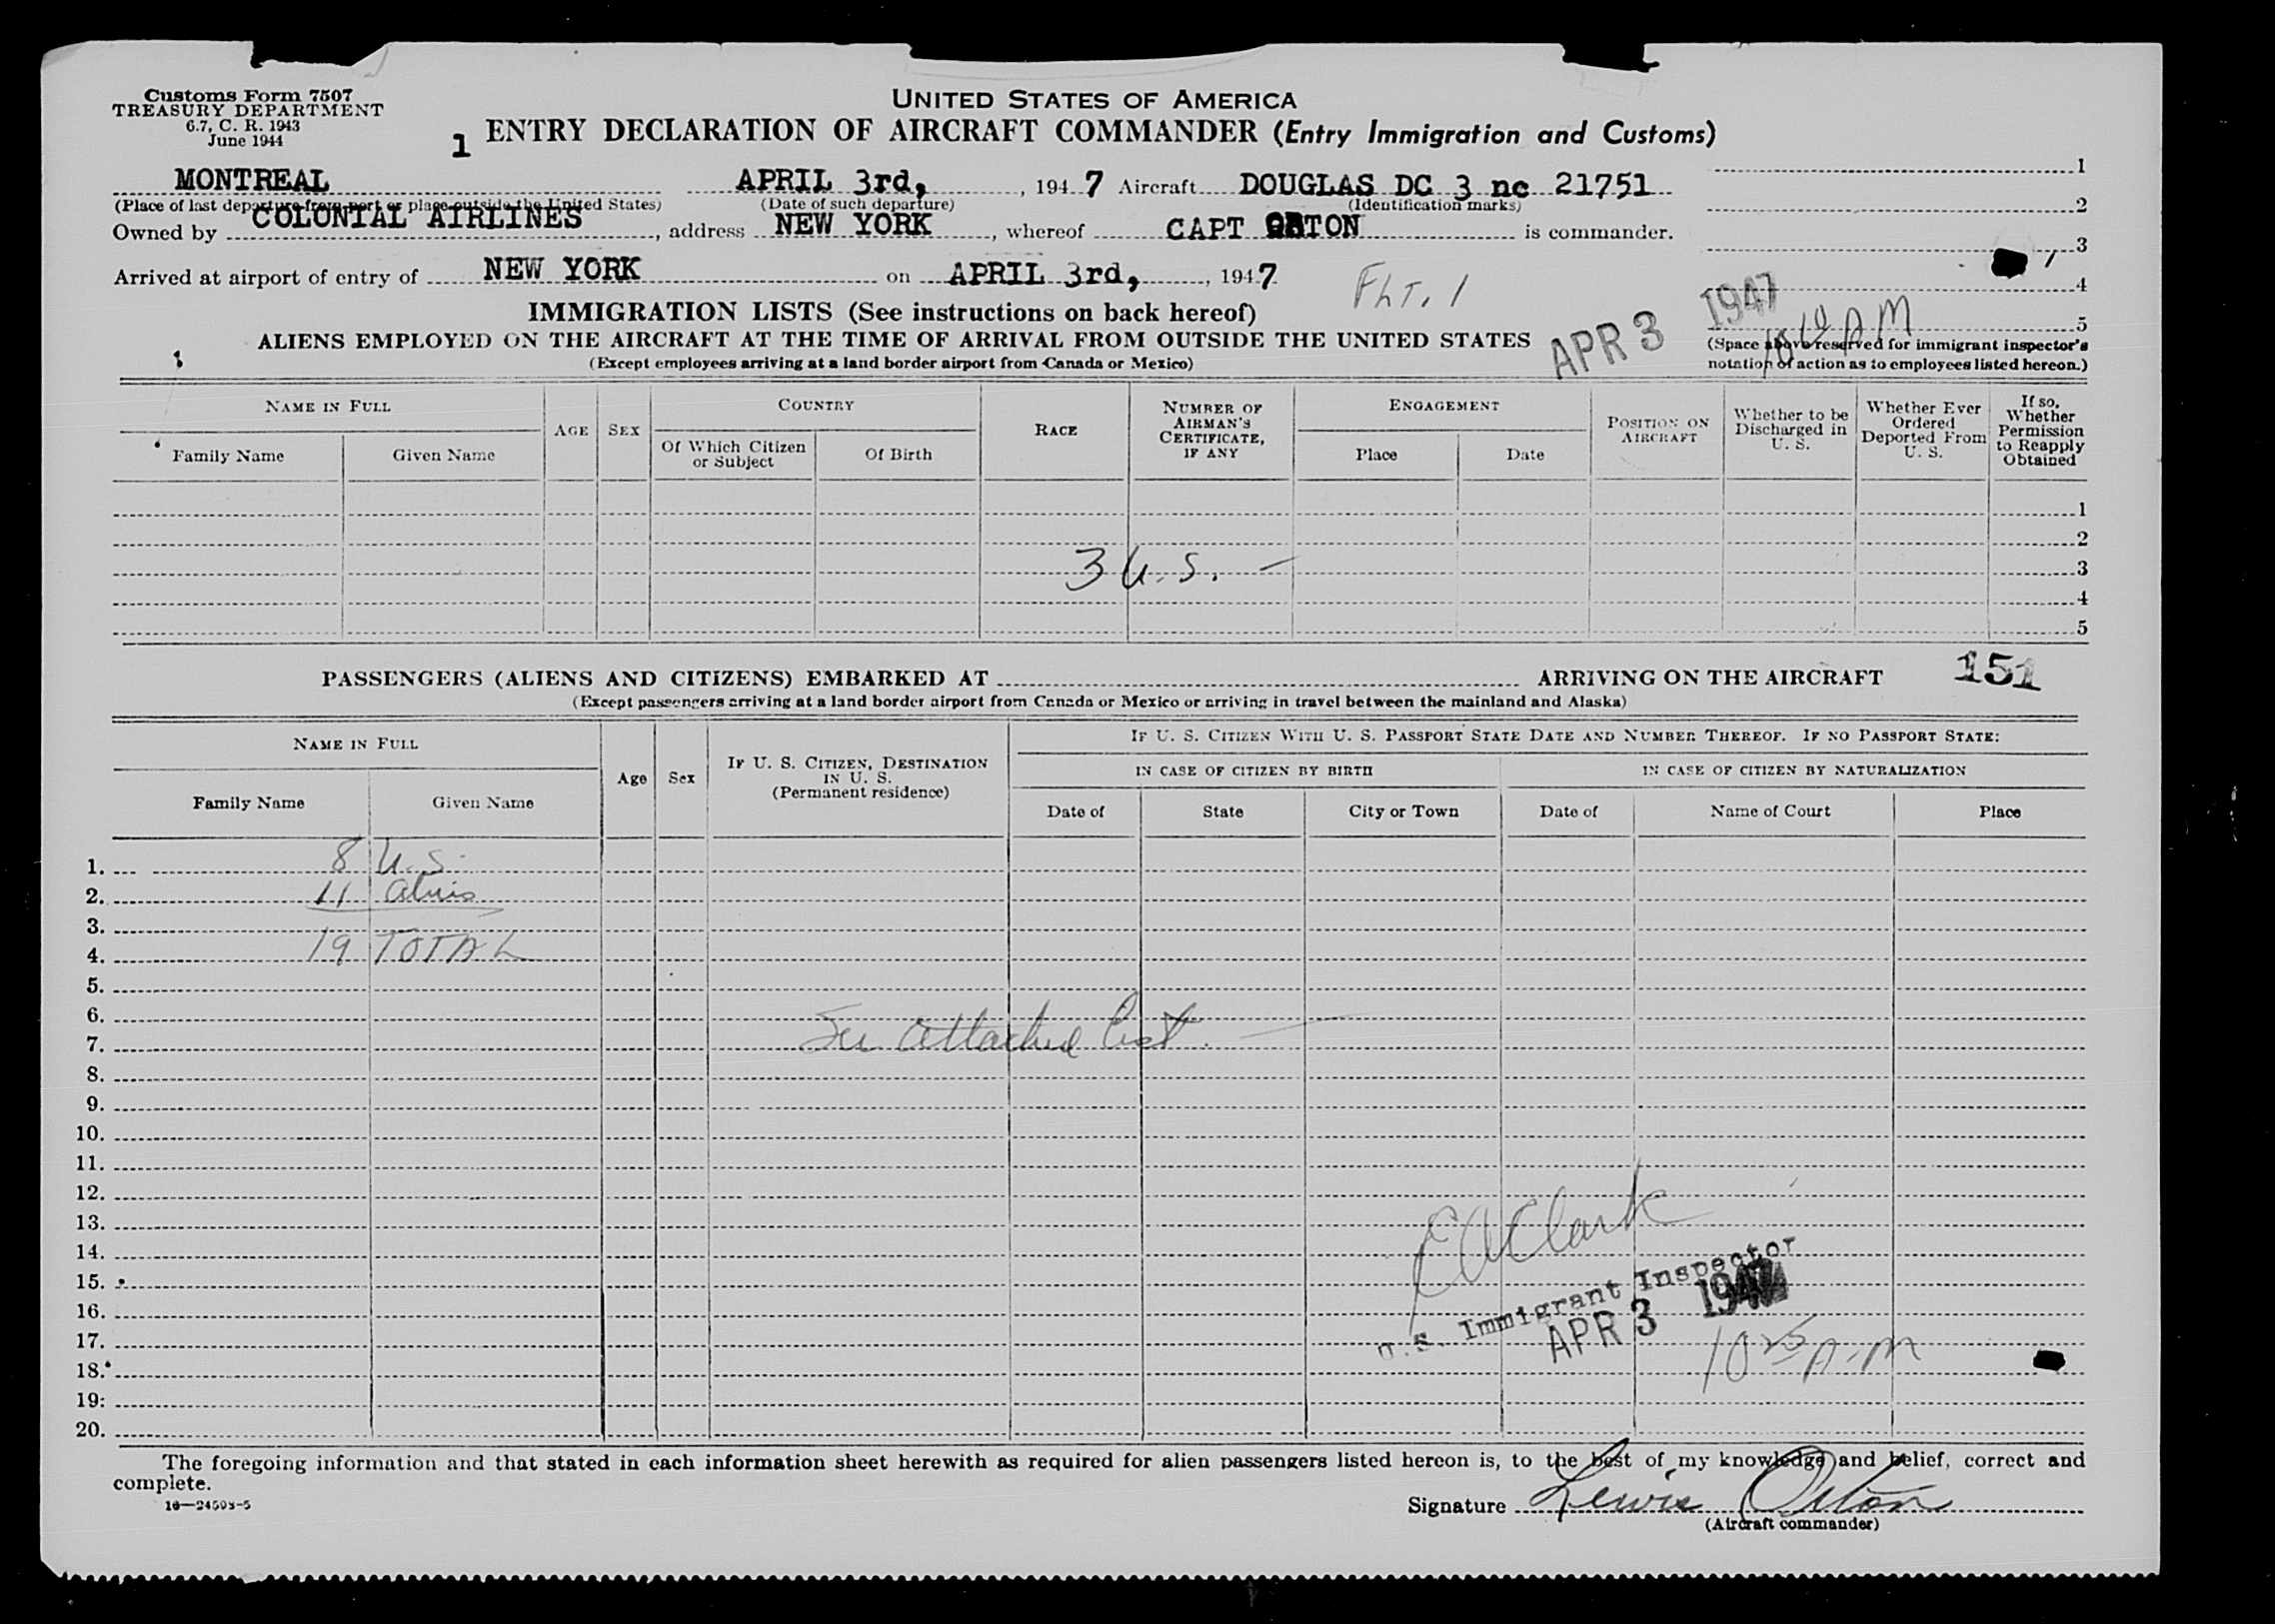 Customs Form 7507
TREASURY DEPARTMENT
6.7, C. R. 1943
June 1944
UNITED STATES OF AMERICA
1 ENTRY DECLARATION OF AIRCRAFT COMMANDER (Entry Immigration and Customs)
MONTREAL APRIL 3rd, , 1947 Aircraft DOUGLAS DC 3 nc 21751
(Place of last departure from port or place outside the United States) (Date of such departure) (Identification marks)
Owned by COLONIAL AIRLINES, address NEW YORK, whereof CAPT ORTON is commander.
Arrived at airport of entry of NEW YORK on APRIL 3rd, , 1947
FLT. 1
1
2
3
4
5
APR 3 1947
AM
(Space above reserved for immigrant inspector's
notation of action as to employees listed hereon.)
IMMIGRATION LISTS (See instructions on back hereof)
ALIENS EMPLOYED ON THE AIRCRAFT AT THE TIME OF ARRIVAL FROM OUTSIDE THE UNITED STATES
(Except employees arriving at a land border airport from Canada or Mexico)
NAME IN FULL
Family Name
Given Name
AGE
SEX
COUNTRY
Of Which Citizen
or Subject
Of Birth
RACE
NUMBER OF
AIRMAN'S
CERTIFICATE,
IF ANY
ENGAGEMENT
Place
Date
POSITION ON
AIRCRAFT
Whether to be
Discharged in
U. S.
Whether Ever
Ordered
Deported From
U. S.
If so,
Whether
Permission
to Reapply
Obtained
1
2
3 U.S. – 3
4
5
PASSENGERS (ALIENS AND CITIZENS) EMBARKED AT ARRIVING ON THE AIRCRAFT 151
(Except passengers arriving at a land border airport from Canada or Mexico or arriving in travel between the mainland and Alaska)
NAME IN FULL
Family Name
Given Name
Age
Sex
IF U. S. CITIZEN, DESTINATION
IN U. S.
(Permanent residence)
IF U. S. CITIZEN WITH U. S. PASSPORT STATE DATE AND NUMBER THEREOF. IF NO PASSPORT STATE:
IN CASE OF CITIZEN BY BIRTH
IN CASE OF CITIZEN BY NATURALIZATION
Date of
State
City or Town
Date of
Name of Court
Place
1. 8 U.S.
2. 11 aliens
3.
4. 19 TOTAL
5.
6.
7. See attached list.
8.
9.
10.
11.
12.
13.
14.
15.
16.
17.
18.
19.
20.
E A Clark
U.S. Immigrant Inspector
APR 3 1947
10 25 A.M
The foregoing information and that stated in each information sheet herewith as required for alien passengers listed hereon is, to the best of my knowledge and belief, correct and
complete.
16—24598-5
Signature Lewis Orton
(Aircraft commander)